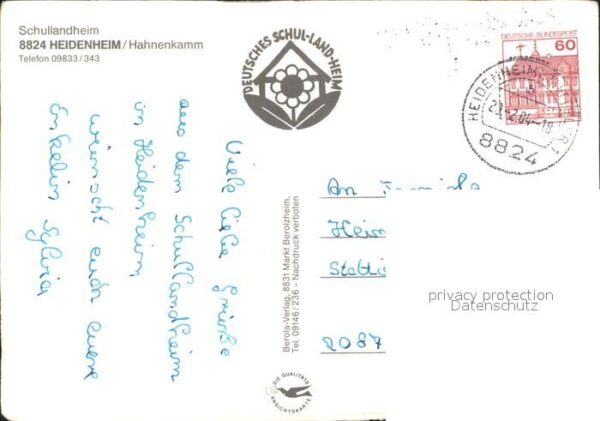 Schullandheim
8824 HEIDENHEIM/Hahnenkamm
Telefon 09833/343
DEUTSCHES SCHUL-LAND-HEIM
DEUTSCHE BUNDESPOST
60
HEIDENHEIM
2.84-18
8824
Viele liebe Grüße
aus dem Schullandheim
in Heidenheim
wünscht euch eure
Enkelin Sylvia
Berola-Verlag, 8831 Markt Berolzheim,
Tel. 09146/236 - Nachdruck verboten
An
Heim
Stetti
2087
privacy protection
Datenschutz
DIE QUALITÄTS
ANSICHTSKARTE